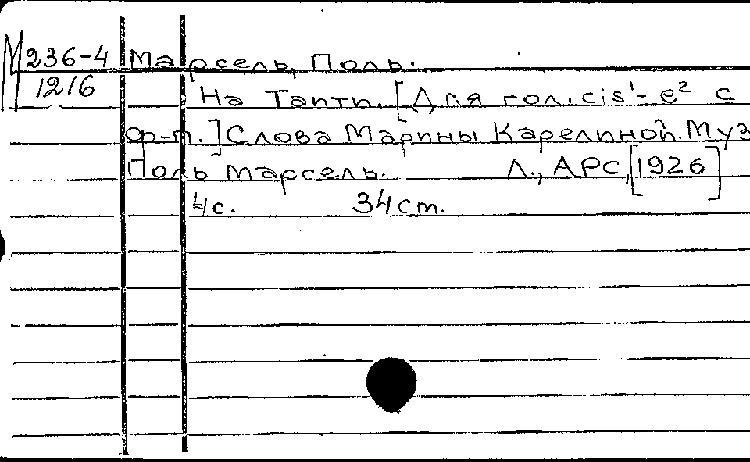 М 236-4 Марсель, Поль.
1216 На Тапти. [Для гол. cis¹- e² с
ф-п.] Слова Марины Карелиной. Муз
Поль Марсель. Л., АРС, [1926]
4с. 34 cm.